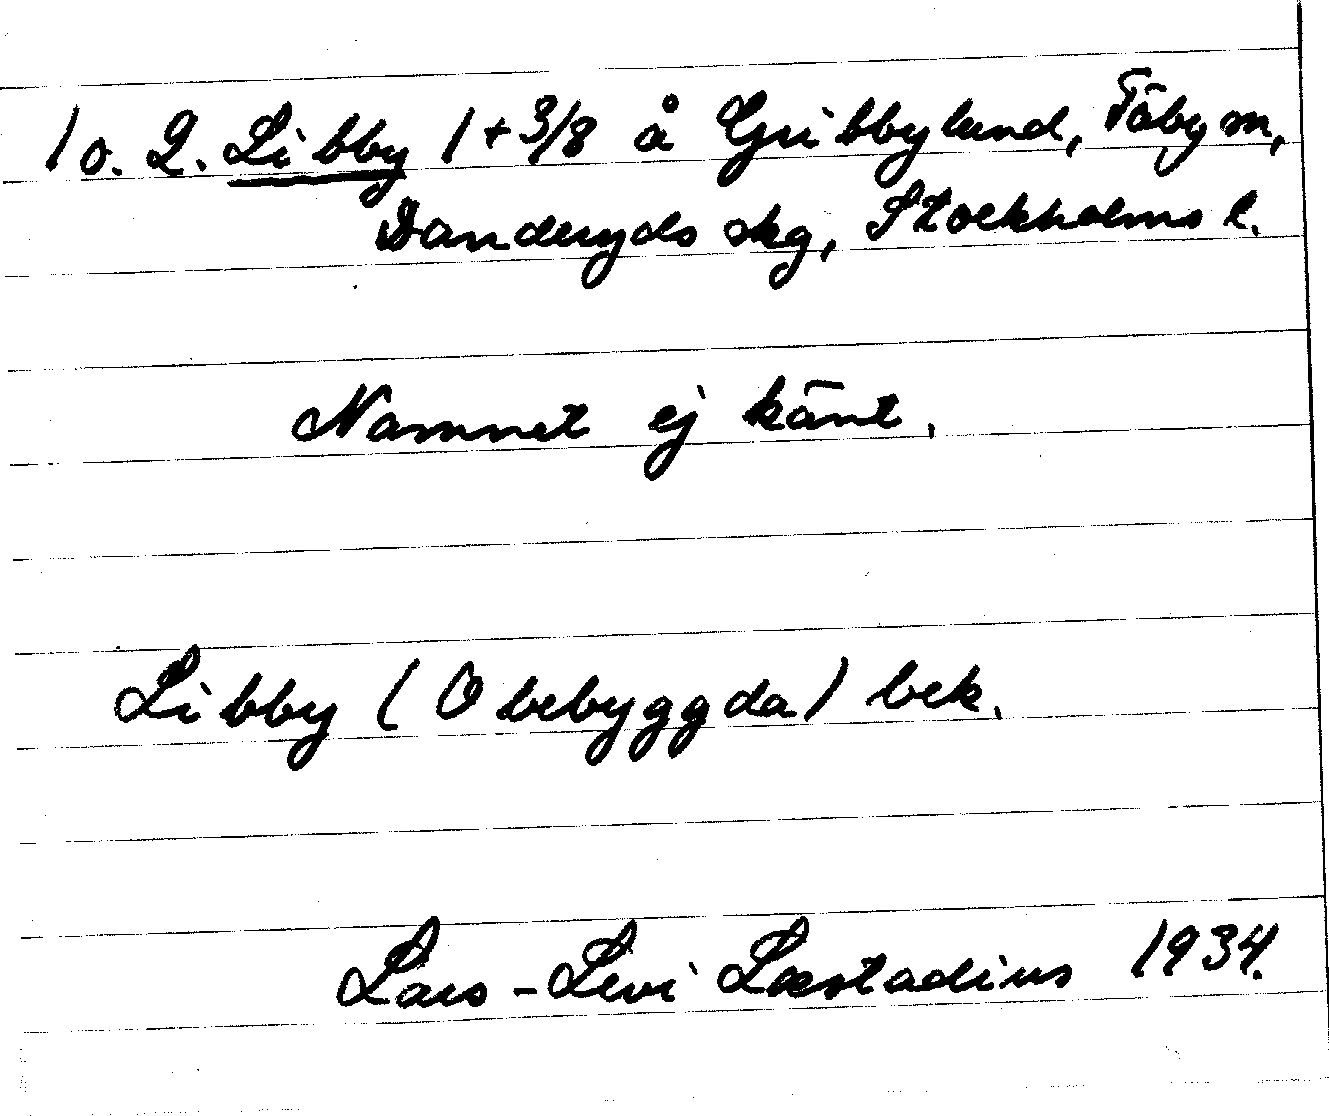 1 o. 2. Libby 1+3/8 å Gribbylund, Täby sn,
Danderyds skg, Stockholms l.
Namnet ej känt.
Libby (Obebyggda) bek.
Lars-Levi Læstadius 1934.